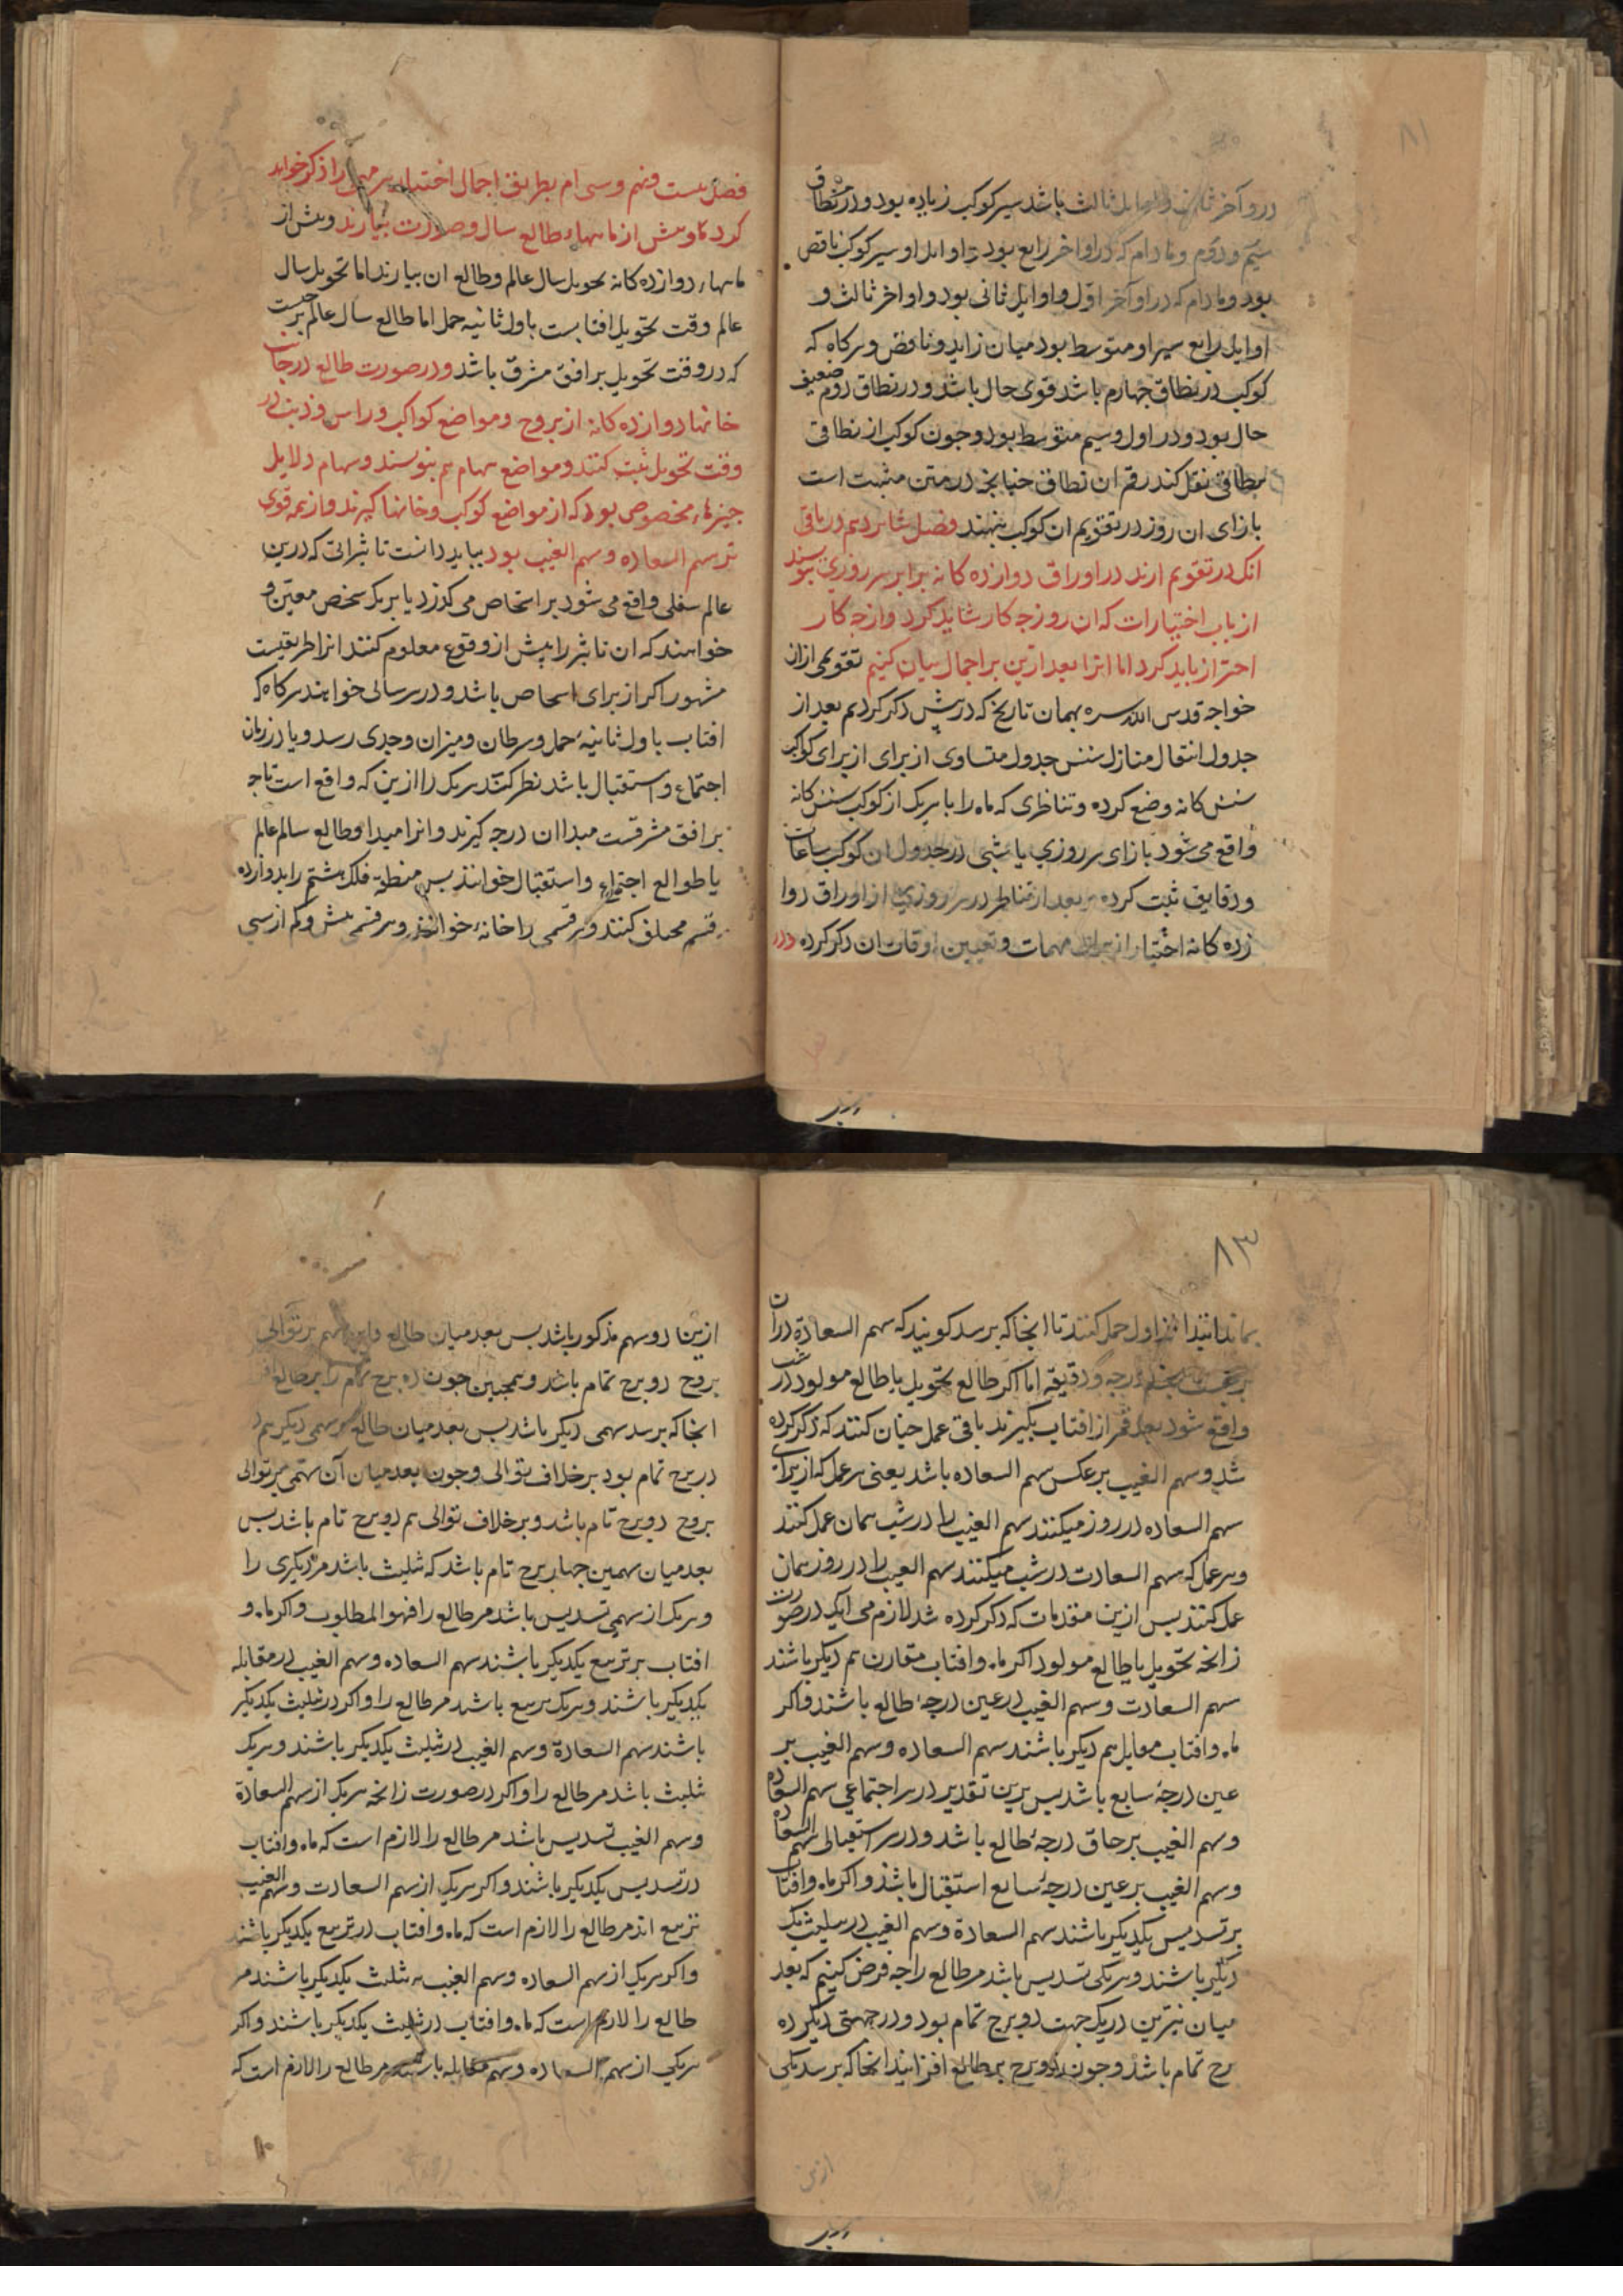 ۸۱
در و آخر ثانی و اوایل ثالث باشد سیر کوکب زیاده بود و در نطاق
سیم و دوم و مادام که در اواخر رابع بود تا اوایل او سیر کوکب ناقص
بود و مادام که در اواخر اول و اوایل ثانی بود و اواخر ثالث و
اوایل رابع سیر او متوسط بود میان زاید و ناقص و هرکاه که
کوکب در نطاق چهارم باشد قوی حال باشد و در نطاق دوم ضعیف
حال بود و در اول و سیم متوسط بود و چون کوکب از نطاقی
بنطاقی نقل کند رقم ان نطاق چنانچه در متن مثبت است
بازای ان روز در تقویم ان کوکب بنهند فصل شانزدهم در باقی
انک در تقویم ارند در اوراق دوازده کانه برابر هر روزی بنویسند
از باب اختیارات که ان روز چه کار شاید کرد و از چه کار
احتراز باید کرد اما انرا بعد ازین بر اجمال بیان کنیم تقویمی از ان
خواجه قدس الله سره بهمان تاریخ که در پیش ذکر کردیم بعد از
جدول انتقال منازل شش جدول متساوی از برای از برای کواکب
شش کانه وضع کرده و تناظری که ماه را با هریک از کوکب شش کانه
واقع می شود بازای هر روزی یا شبی در جدول ان کوکب ساعات
و دقایق ثبت کرده و بعد از تناظر در هر روزی از اوراق دوا
زده کانه اختیار از برای مهمات و تعیین اوقات ان ذکر کرده در
فصل بیست و نهم و سی ام بطریق اجمال اختیار هر مهمی را ذکر خواهد
کرد و بیش از ماهها طالع سال و صورت بیارند و بیش از
ماههاء دوازده کانه تحویل سال عالم و طالع ان بیارند اما تحویل سال
عالم وقت تحویل افتابست باول ثانیه حمل اما طالع سال عالم برجیست
که در وقت تحویل بر افق مشرق باشد و در صورت طالع درجات
خانها دوازده کانه از بروج و مواضع کواکب و راس و ذنب در
وقت تحویل ثبت کنند و مواضع سهام هم بنویسند و سهام دلایل
چیزهاء مخصوص بود که از مواضع کوکب و خانها کیرند و از همه قوی
تر سهم السعاده و سهم الغیب بود بباید دانست تاثیراتی که درین
عالم سفلی واقع می شود بر اشخاص می کذرد یا بر یک شخص معین و
خواهند که ان تاثیر را پیش از وقوع معلوم کنند انرا طریقیست
مشهور اکر از برای اشخاص باشد و در هر سالی خواهند هرکاه که
افتاب باول ثانیه حمل و سرطان و میزان و جدی رسد و یا در زمان
اجتماع و استقبال باشد نظر کنند هریک را ازین که واقع است تا چه
بر افق مشرقست مبدا ان درجه کیرند و انرا مبدا و طالع سالم عالم
یا طوالع اجتماع و استقبال خوانند پس منطقه فلک هشتم را بدوازده
قسم مختلف کنند و هر قسمی را خانه خوانند و هر قسمی بیش و کم از سی
۸۳
بماند انرا از اول حمل کنند تا انجا که برسد کویند که سهم السعادة در ان
برجست بچند درجه و دقیقه اما اکر طالع تحویل یا طالع مولود در شب
واقع شود بعد قمر از افتاب بگیرند باقی عمل چنان کنند که ذکر کرده
شد و سهم الغیب بر عکس سهم السعاده باشد یعنی هر عمل که از برای
سهم السعاده در روز میکنند سهم الغیب را در شب همان عمل کنند
و هر عمل که سهم السعادت در شب میکنند سهم الغیب را در روز همان
عمل کنند پس ازین مقدمات که ذکر کرده شد لازم می اید که در صورت
زائجه تحویل یا طالع مولود اکر ماه و افتاب مقارن هم دیکر باشند
سهم السعادت و سهم الغیب در عین درجه طالع باشند و اکر
ماه و افتاب مقابل هم دیکر باشند سهم السعاده و سهم الغیب بر
عین درجه سابع باشد پس برین تقدیر در هر اجتماعی سهم السعاده
و سهم الغیب بر حاق درجه طالع باشد و در هر استقبالی سهم السعاده
و سهم الغیب بر عین درجه سابع استقبال باشد و اکر ماه و افتاب
بر تسدیس یکدیکر باشند سهم السعادة و سهم الغیب در تثلیث یک
دیکر باشند و هر یکی تسدیس باشد مر طالع را چه فرض کنیم که بعد
میان نیرین در یک جهت دو برج تمام بود و در جهتی دیکر ده
برج تمام باشد و چون دو برج بر طالع افزایند انجا که برسد یکی
ازین
ازین دو سهم مذکور باشد پس بعد میان طالع و این سهم بر توالی
بروج دو برج تمام باشد و همچنین چون ده برج تمام را بر طالع افز
انجا که برسد سهمی دیکر باشد پس بعد میان طالع و سهمی دیکر هم د
در برج تمام بود بر خلاف توالی و چون بعد میان آن سهمی بر توالی
بروج دو برج تام باشد و بر خلاف توالی هم دو برج تام باشد پس
بعد میان سهمین چهار برج تام باشد که تثلیث باشد مر دیکری را
و هریک از سهمی تسدیس باشد مر طالع را فهو المطلوب و اکر ماه و
افتاب بر تربیع یکدیکر باشند سهم السعاده و سهم الغیب در مقابله
یکدیکر باشند و هریک تربیع باشد مر طالع را و اکر در تثلیث یکدیکر
باشند سهم السعادة و سهم الغیب در تثلیث یکدیکر باشند و هریک
تثلیث باشد مر طالع را و اکر در صورت زائجه هریک از سهم السعادة
و سهم الغیب تسدیس باشد مر طالع را لازم است که ماه و افتاب
در تسدیس یکدیکر باشند و اکر هریک از سهم السعادت و سهم الغیب
تربیع اند مر طالع را لازم است که ماه و افتاب در تربیع یکدیکر باشند
و اکر هریک از سهم السعاده و سهم الغیب بر تثلیث یکدیکر باشند مر
طالع را لازم است که ماه و افتاب در تثلیث یکدیکر باشند و اکر
هریکی از سهم السعاده و سهم مقابله باشند مر طالع را لازم است که